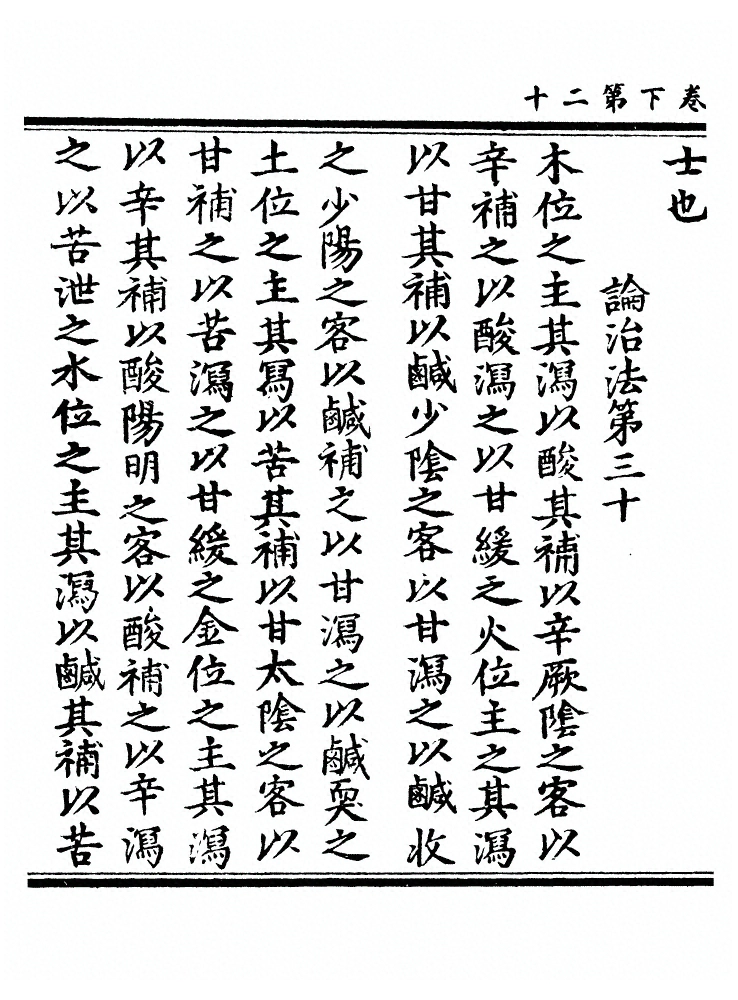 卷下第二十
士也
論治法第三十
木位之主其瀉以酸其補以辛厥陰之客以
辛補之以酸瀉之以甘緩之火位主之其瀉
以甘其補以鹹少陰之客以甘瀉之以鹹收
之少陽之客以鹹補之以甘瀉之以鹹耎之
土位之主其冩以苦其補以甘太陰之客以
甘補之以苦瀉之以甘緩之金位之主其瀉
以辛其補以酸陽明之客以酸補之以辛瀉
之以苦泄之水位之主其瀉以鹹其補以苦